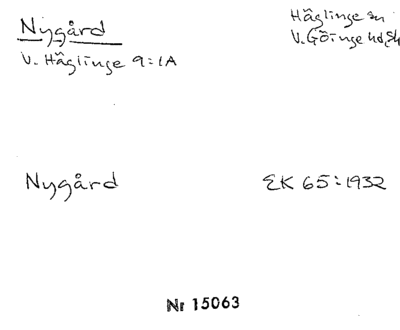 Nygård
V. Häglinge 9:1A
Häglinge sn
V. Göinge hd, Sk
Nygård
EK 65:1932
Nr 15063